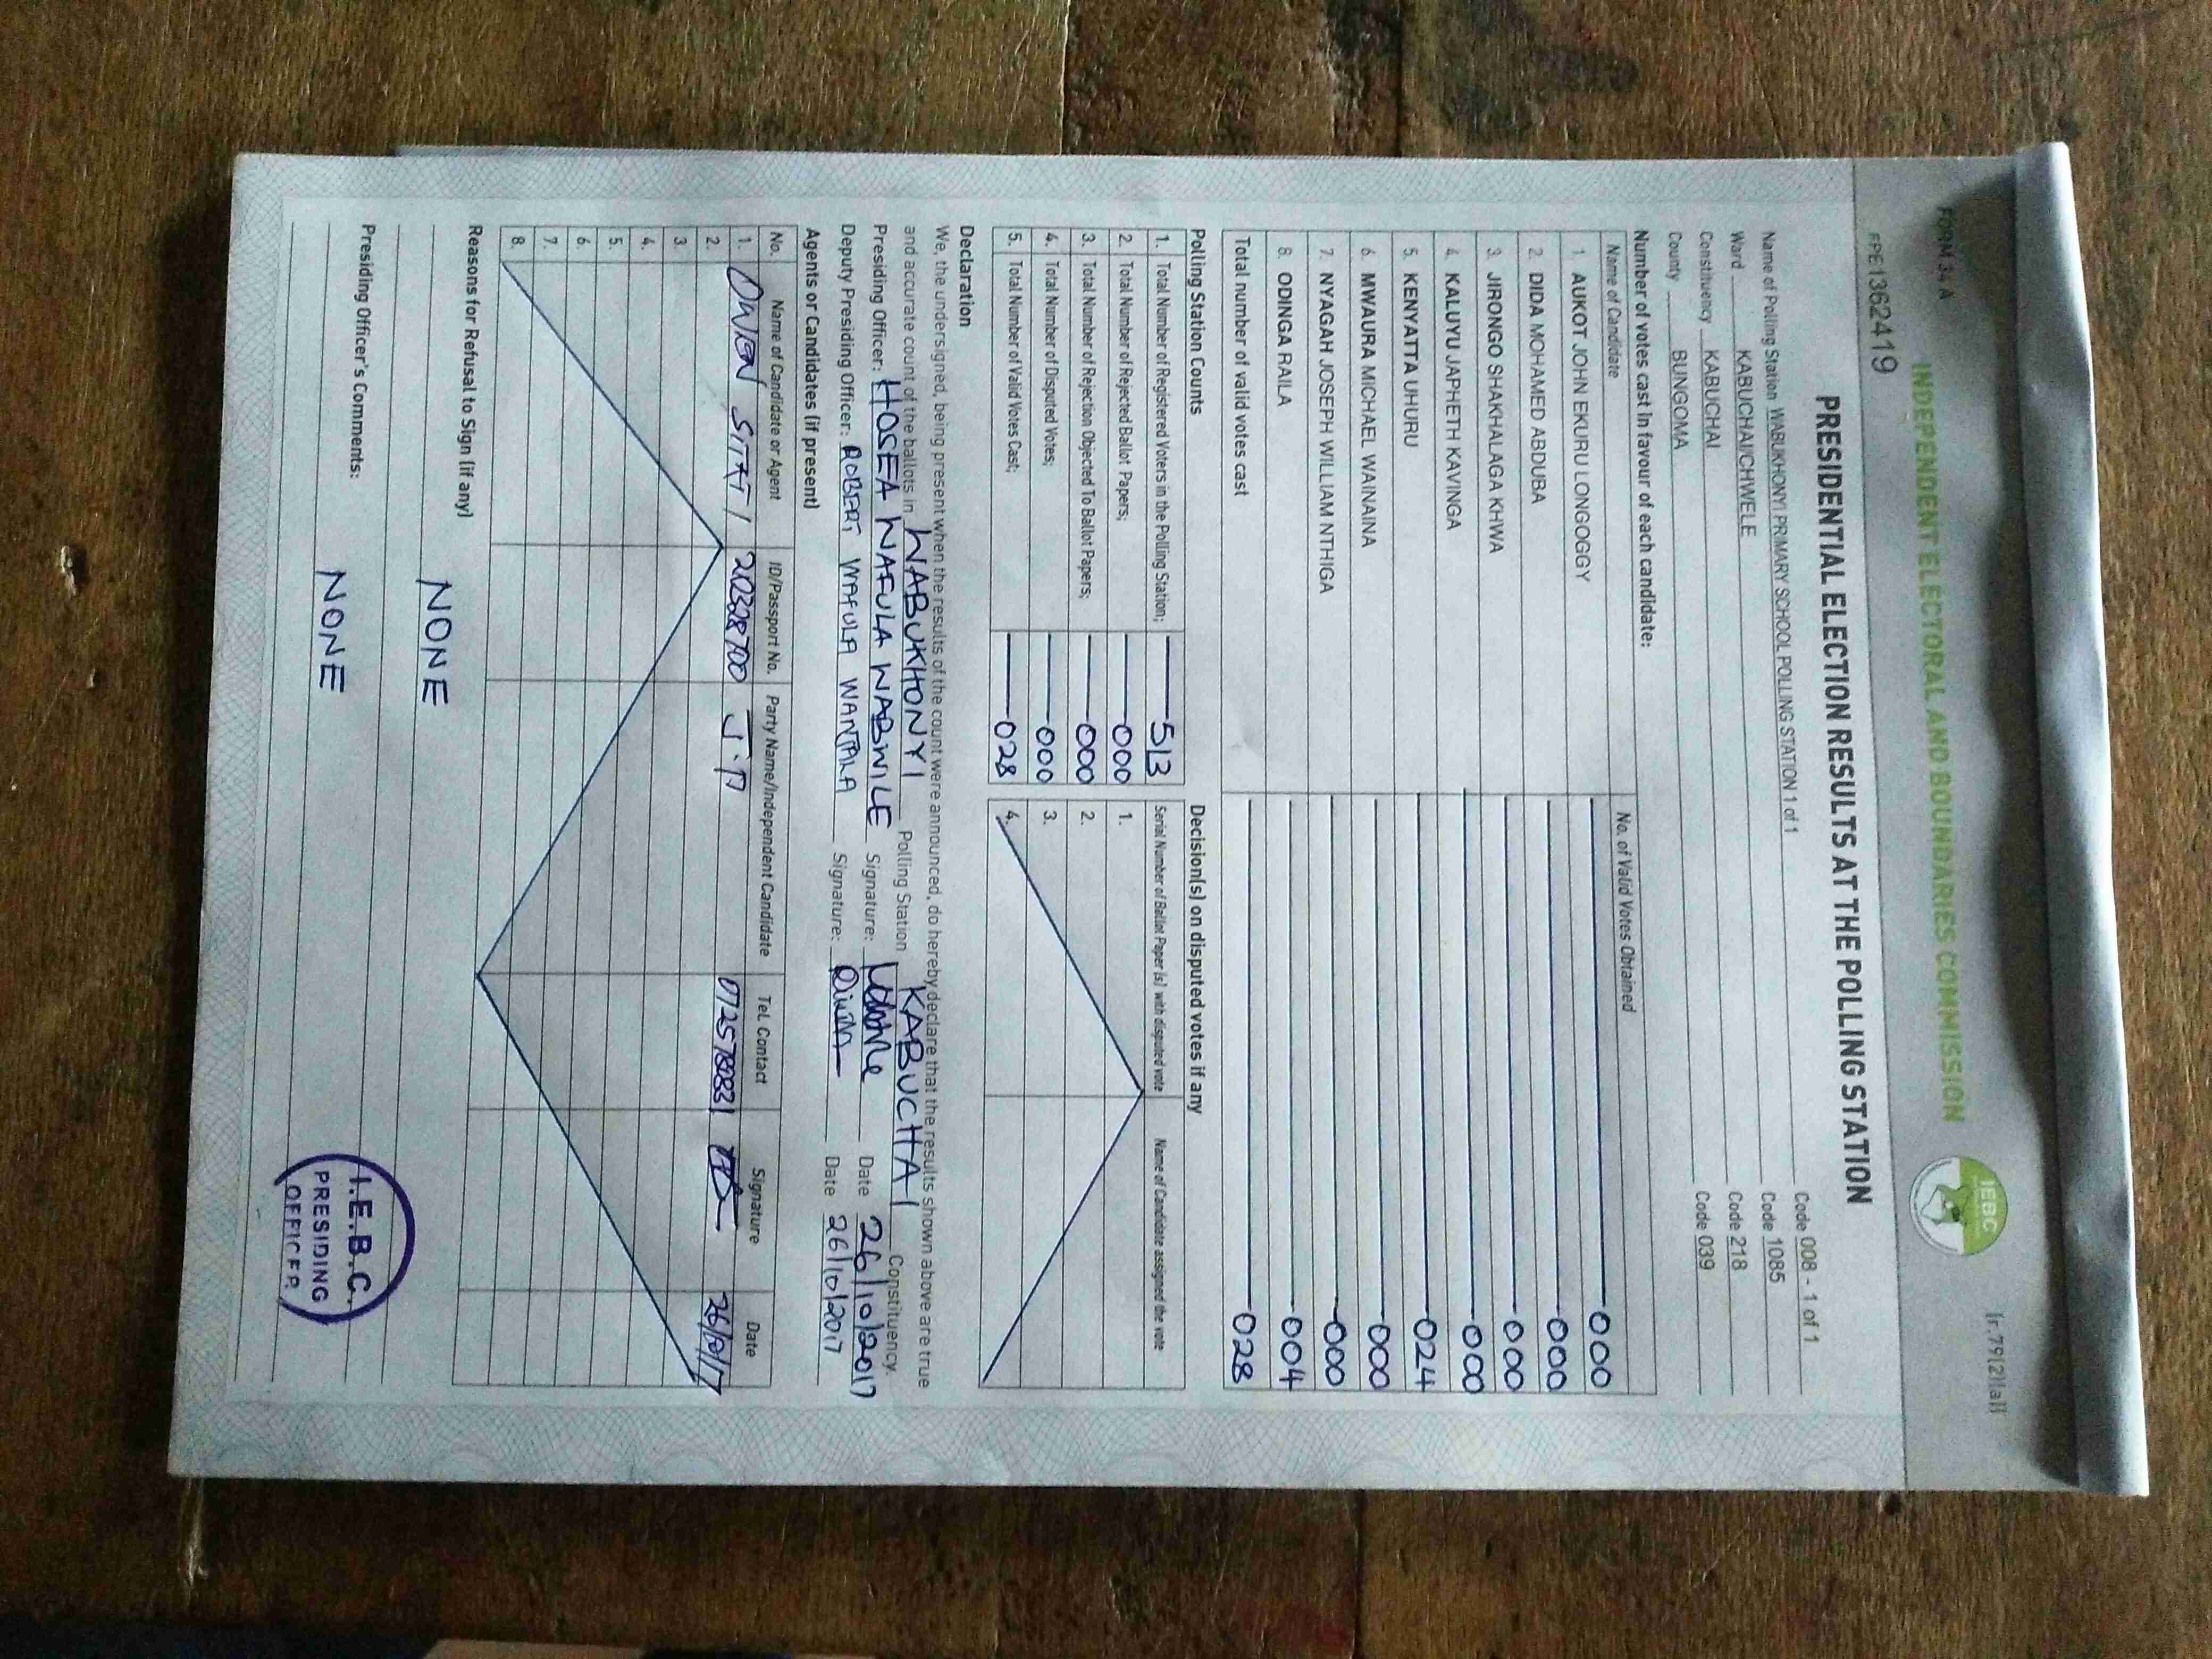 FORM 34 A
INDEPENDENT ELECTORAL AND BOUNDARIES COMMISSION
IEBC
[r.79(2)(a)]
FPE1362419
PRESIDENTIAL ELECTION RESULTS AT THE POLLING STATION
Name of Polling Station WABUKHONYI PRIMARY SCHOOL POLLING STATION 1 of 1 Code 008 - 1 of 1
Ward KABUCHAI/CHWELE Code 1085
Constituency KABUCHAI Code 218
County BUNGOMA Code 039
Number of votes cast in favour of each candidate:
Name of Candidate No. of Valid Votes Obtained
1. AUKOT JOHN EKURU LONGOGGY 000
2. DIDA MOHAMED ABDUBA 000
3. JIRONGO SHAKHALAGA KHWA 000
4. KALUYU JAPHETH KAVINGA 000
5. KENYATTA UHURU 024
6. MWAURA MICHAEL WAINAINA 000
7. NYAGAH JOSEPH WILLIAM NTHIGA 000
8. ODINGA RAILA 004
Total number of valid votes cast 028
Polling Station Counts
1. Total Number of Registered Voters in the Polling Station; 513
2. Total Number of Rejected Ballot Papers; 000
3. Total Number of Rejection Objected To Ballot Papers; 000
4. Total Number of Disputed Votes; 000
5. Total Number of Valid Votes Cast; 028
Decision(s) on disputed votes if any
Serial Number of Ballot Paper (s) with disputed vote Name of Candidate assigned the vote
1.
2.
3.
4.
Declaration
We, the undersigned, being present when the results of the count were announced, do hereby declare that the results shown above are true
and accurate count of the ballots in WABUKHONYI Polling Station KABUCHAI Constituency.
Presiding Officer: HOSEA WAFULA WABWILE Signature: Date 26/10/2017
Deputy Presiding Officer: ROBERT WAFULA Signature: Date 26/10/2017
Agents or Candidates (if present)
No. Name of Candidate or Agent ID/Passport No. Party Name/Independent Candidate Tel. Contact Signature Date
1. OWEN SITATI J.P
2.
3.
4.
5.
6.
7.
8.
Reasons for Refusal to Sign (if any)
NONE
Presiding Officer's Comments:
NONE
I.E.B.C.
PRESIDING
OFFICER